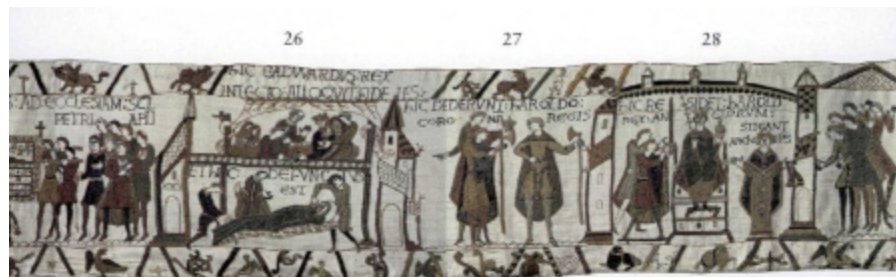 26 27 28
S: AD: ECCLESIAM: SCI
PETRI AP̅I
HIC EADVVARDVS: REX
IN LECTO: ALLOQVIT: FIDELES:
ET HIC: DEFVNCTVS
EST
HIC DEDERVNT: HAROLDO:
CORO NA REGIS
HIC RE SIDET: HAROLD
REX: AN GLORVM:
STIGANT
ARChIEP̅S